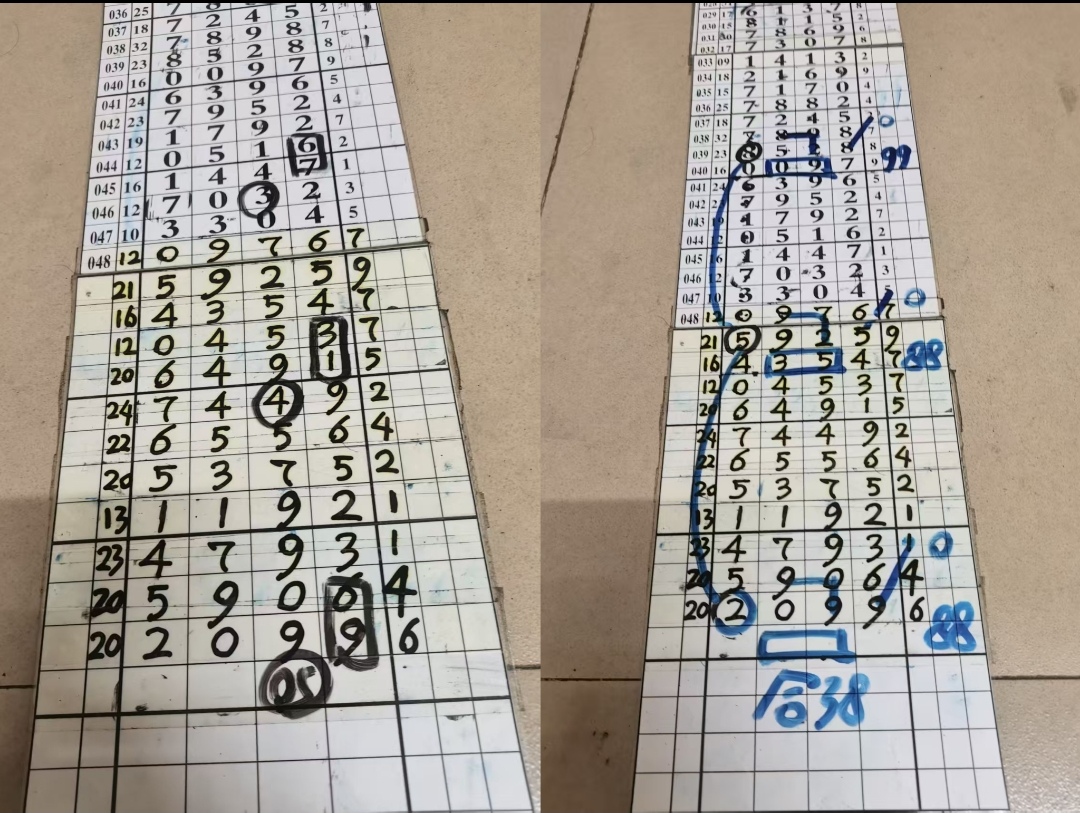 036 25
037 18 7 2 4 5 2
038 32 7 8 9 8 7
039 23 8 5 2 8 8
040 16 0 0 9 7 9
041 24 6 3 9 6 5
042 23 7 9 5 2 4
043 19 1 7 9 2 7
044 12 0 5 1 6 2
045 16 1 4 4 7 1
046 12 7 0 3 2 3
047 10 3 3 0 4 5
048 12 0 9 7 6 7
21 5 9 2 5 9
16 4 3 5 4 7
12 0 4 5 3 7
20 6 4 9 1 5
24 7 4 4 9 2
22 6 5 5 6 4
20 5 3 7 5 2
13 1 1 9 2 1
23 4 7 9 3 1
20 5 9 0 6 4
20 2 0 9 9 6
05
029 17 6 1 3 7 8
031 30 7 8 6 9
032 17 7 3 0 7 8
033 09 1 4 1 3 2
034 18 2 1 6 9 9
035 15 7 1 7 0 4
036 25 7 8 8 2 4
037 18 7 2 4 5 2 0
038 32 7 8 9 8 7
039 23 8 5 2 8 8
040 16 0 0 9 7 9 99
041 24 6 3 9 6 5
042 23 7 9 5 2 4
043 19 1 7 9 2 7
044 12 0 5 1 6 2
045 16 1 4 4 7 1
046 12 7 0 3 2 3
047 10 3 3 0 4 5 0
048 12 0 9 7 6 7
21 5 9 2 5 9
16 4 3 5 4 7 88
12 0 4 5 3 7
20 6 4 9 1 5
24 7 4 4 9 2
22 6 5 5 6 4
20 5 3 7 5 2
13 1 1 9 2 1
23 4 7 9 3 1 0
20 5 9 0 6 4
20 2 0 9 9 6 88
后38